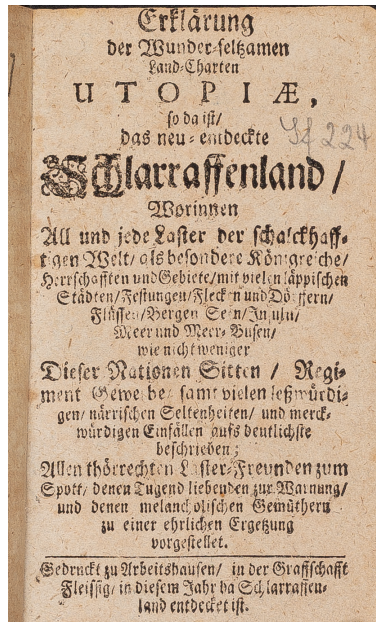 Erklärung
der Wunder-seltzamen
Land-Charten
UTOPIÆ,
so da ist/
das neu-entdeckte
Schlarraffenland/
Worinnen
All und jede Laster der schalckhaff-
tigen Welt/ als besondere Königreiche/
Herrschafften und Gebiete/ mit vielen läppischen
Städten/ Festungen/ Flecken und Dörffern/
Flüssen/ Bergen Seen/ Insuln/
Meer und Meer-Busen/
wie nicht weniger
Dieser Nationen Sitten/ Regi-
ment Gewerbe/ samt vielen leßwürdi-
gen/ närrischen Seltenheiten/ und merck-
würdigen Einfällen aufs deutlichste
beschrieben;
Allen thörrechten Laster-Freunden zum
Spott/ denen Tugend liebenden zur Warnung/
und denen melancholischen Gemüthern
zu einer ehrlichen Ergetzung
vorgestellet.
Gedruckt zu Arbeitshausen/ in der Graffschafft
Fleissig/ in diesem Jahr da Schlarraffen-
land entdecket ist.
224